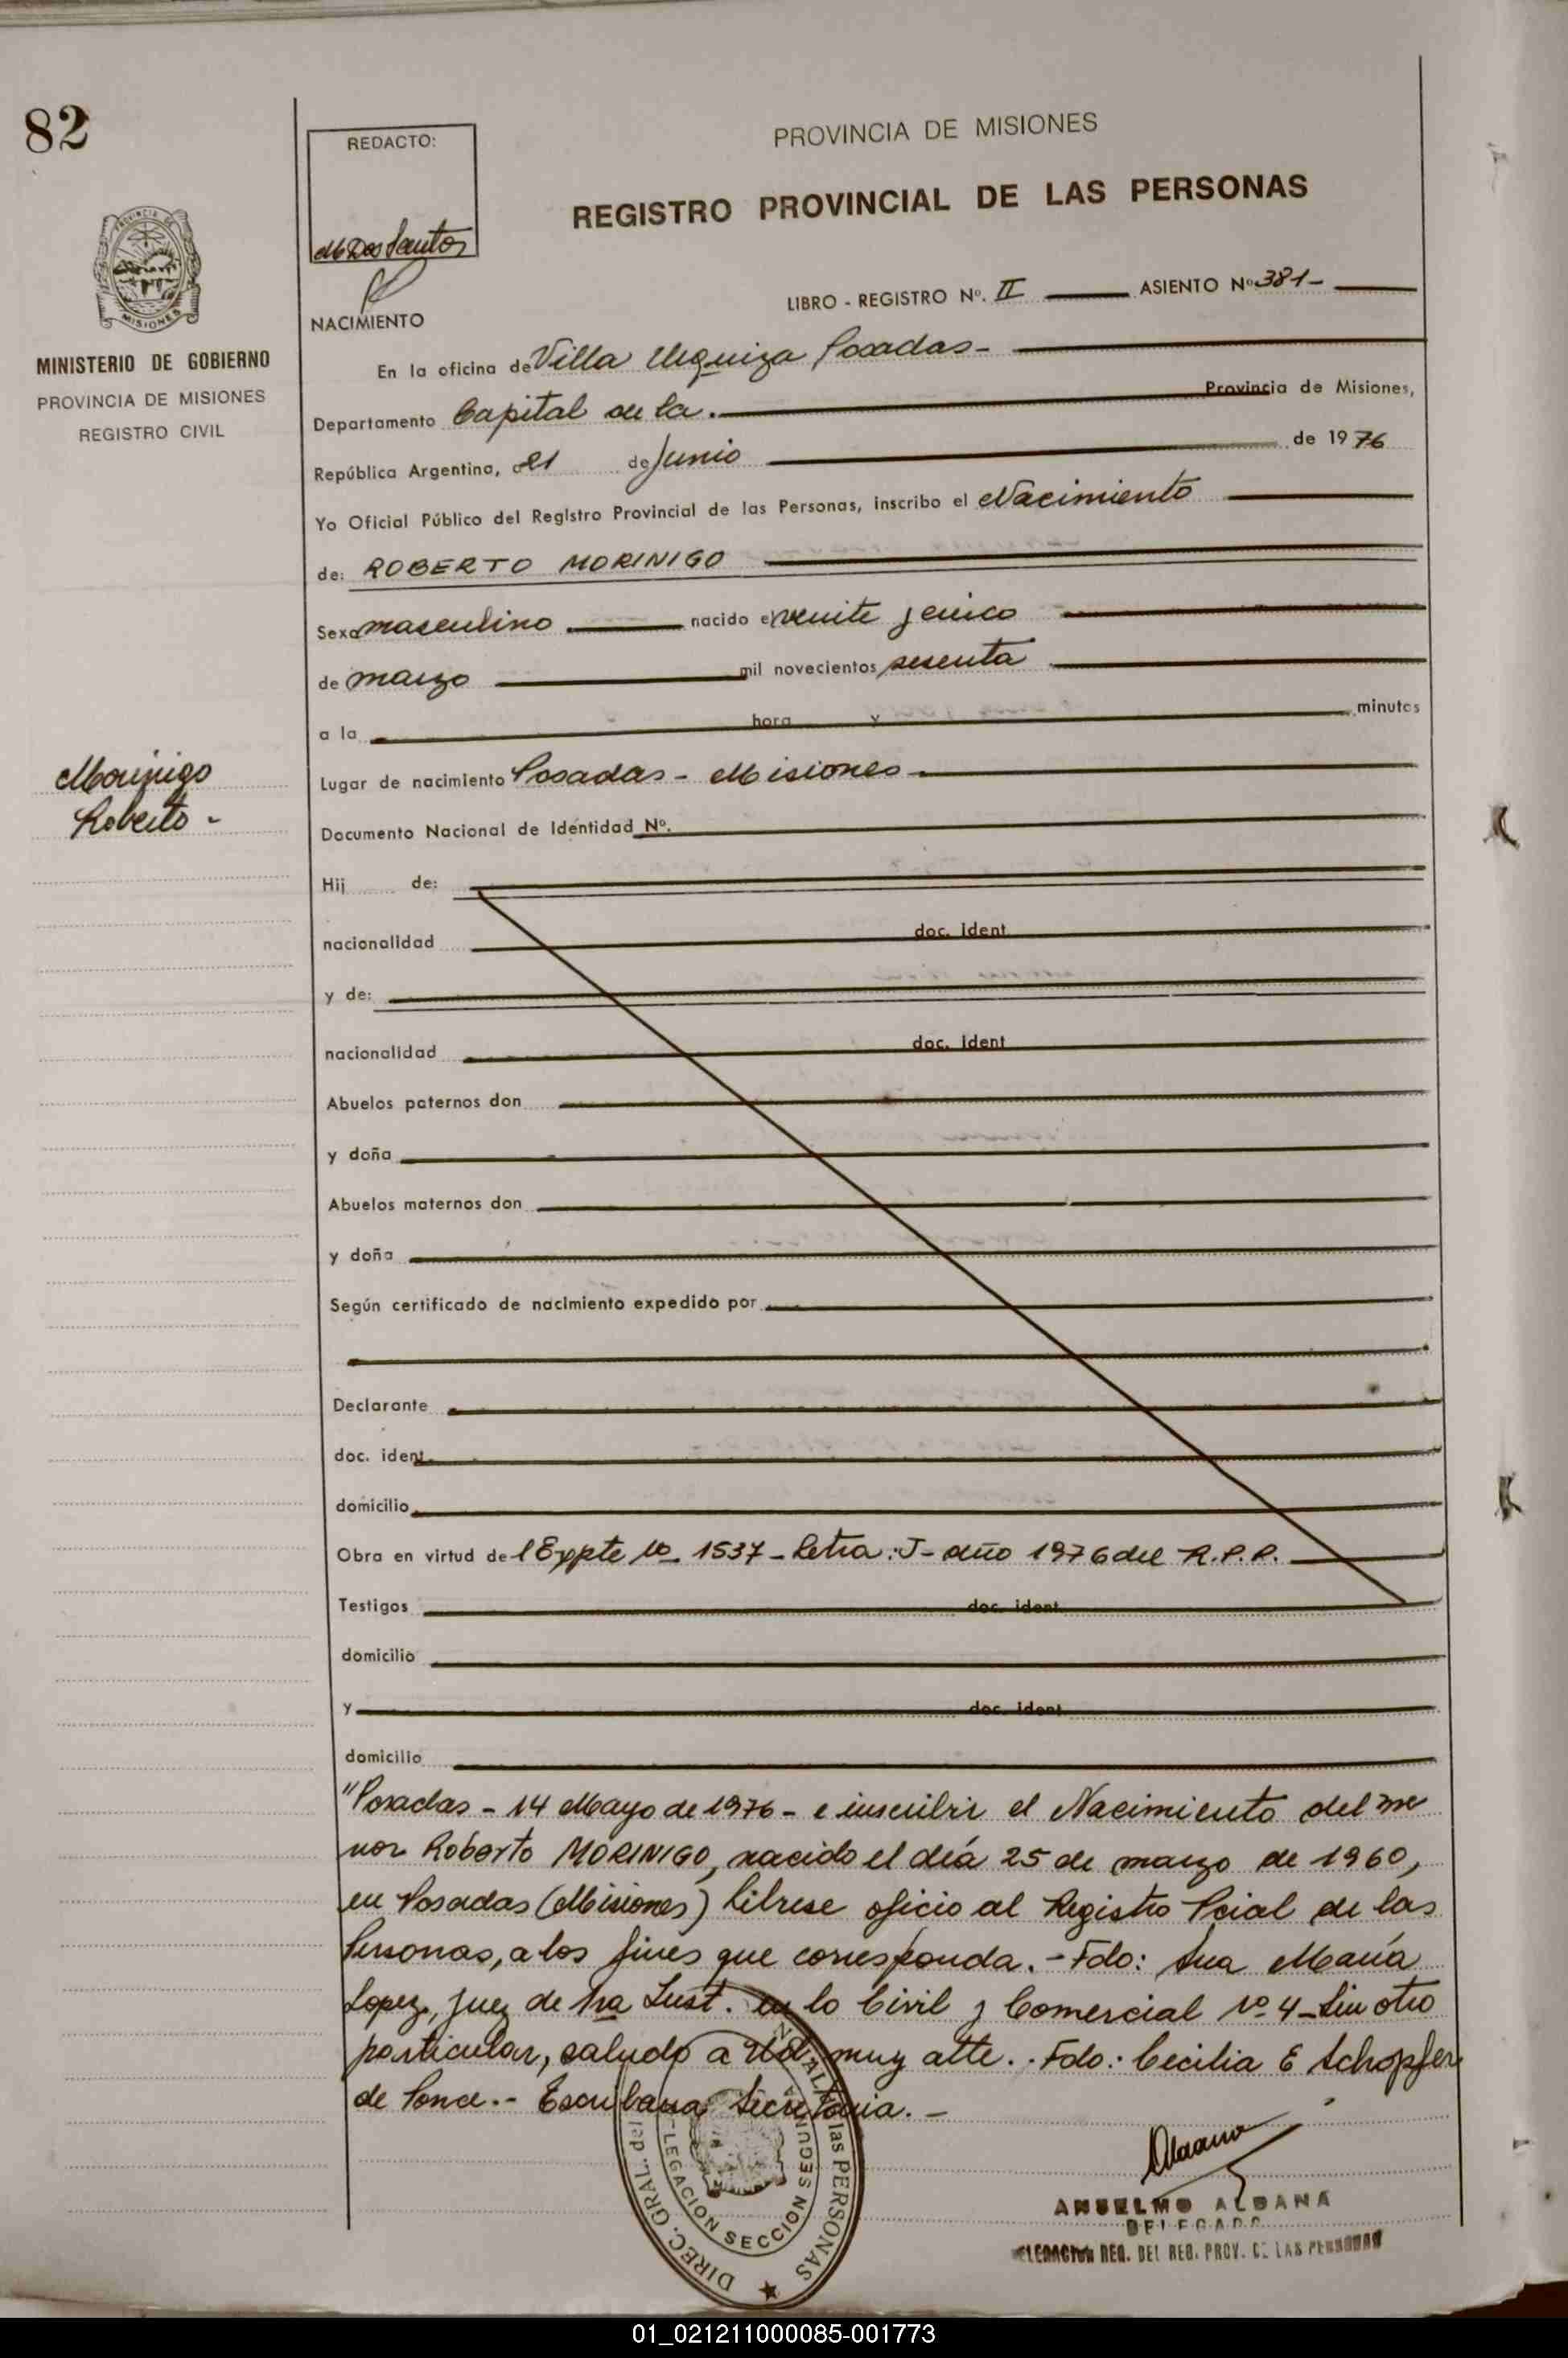 82
REDACTO:
M Dos Santos
PROVINCIA DE MISIONES
REGISTRO PROVINCIAL DE LAS PERSONAS
PROVINCIA DE
MISIONES
MINISTERIO DE GOBIERNO
PROVINCIA DE MISIONES
REGISTRO CIVIL
LIBRO - REGISTRO Nº. II ASIENTO Nº 381-
NACIMIENTO
En la oficina de Villa Urquiza Posadas-
Departamento Capital de la. Provincia de Misiones,
República Argentina, a 21 de Junio de 1976
Yo Oficial Público del Registro Provincial de las Personas, inscribo el Nacimiento
de: ROBERTO MORINIGO
Sexo masculino nacido el veinte y cinco
de marzo mil novecientos sesenta
a la hora y minutos
Morinigo
Roberto -
Lugar de nacimiento Posadas - Misiones-
Documento Nacional de Identidad Nº.
Hij de:
nacionalidad doc. ident
y de:
nacionalidad doc. ident
Abuelos paternos don
y doña
Abuelos maternos don
y doña
Según certificado de nacimiento expedido por
Declarante
doc. ident.
domicilio
Obra en virtud del Expte Nº 1537 - Letra: "J- año 1976 del R.P.P.
Testigos doc. ident
domicilio
y doc. ident
domicilio
"Posadas - 14 Mayo de 1976 - e inscribir el Nacimiento del me
nor Roberto MORINIGO, nacido el día 25 de marzo de 1960,
en Posadas (Misiones) Librese oficio al Registro Pcial de las
Personas, a los fines que corresponda. - Fdo: Ana María
Lopez, Juez de 1ra Inst. en lo Civil y Comercial Nº 4 - Sin otro
particular, saludo a Ud. muy atte. . Fdo.: Cecilia E Schopfer
de Ponce.- Escribana Secretaria. -
DIREC. GRAL. del las PERSONAS
SECCION
ANSELMO ALDANA
DELEGADO
DELEGACION REG. DEL REG. PROV. DE LAS PERSONAS
01_021211000085-001773